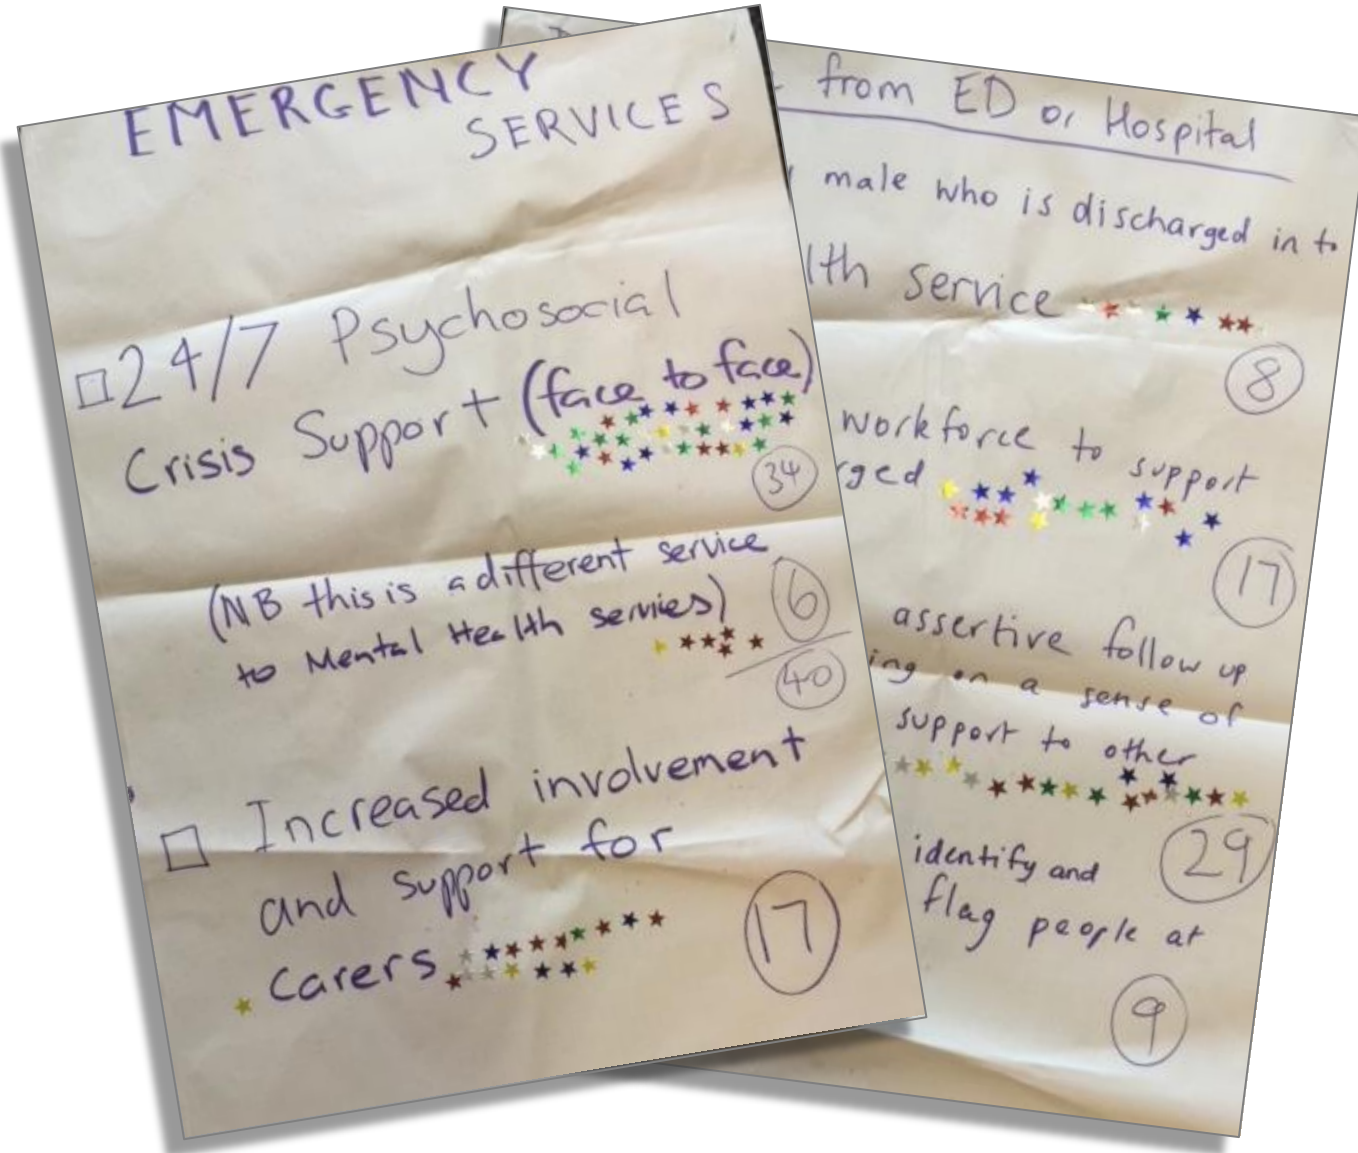 EMERGENCY
SERVICES
24/7 Psychosocial
Crisis Support (face to face)
34
(NB this is a different service
to Mental Health servies)
6
40
Increased involvement
and support for
carers
17
from ED or Hospital
male who is discharged in to
lth service
8
workforce to support
ged
17
assertive follow up
ing on a sense of
support to other
29
identify and
flag people at
9